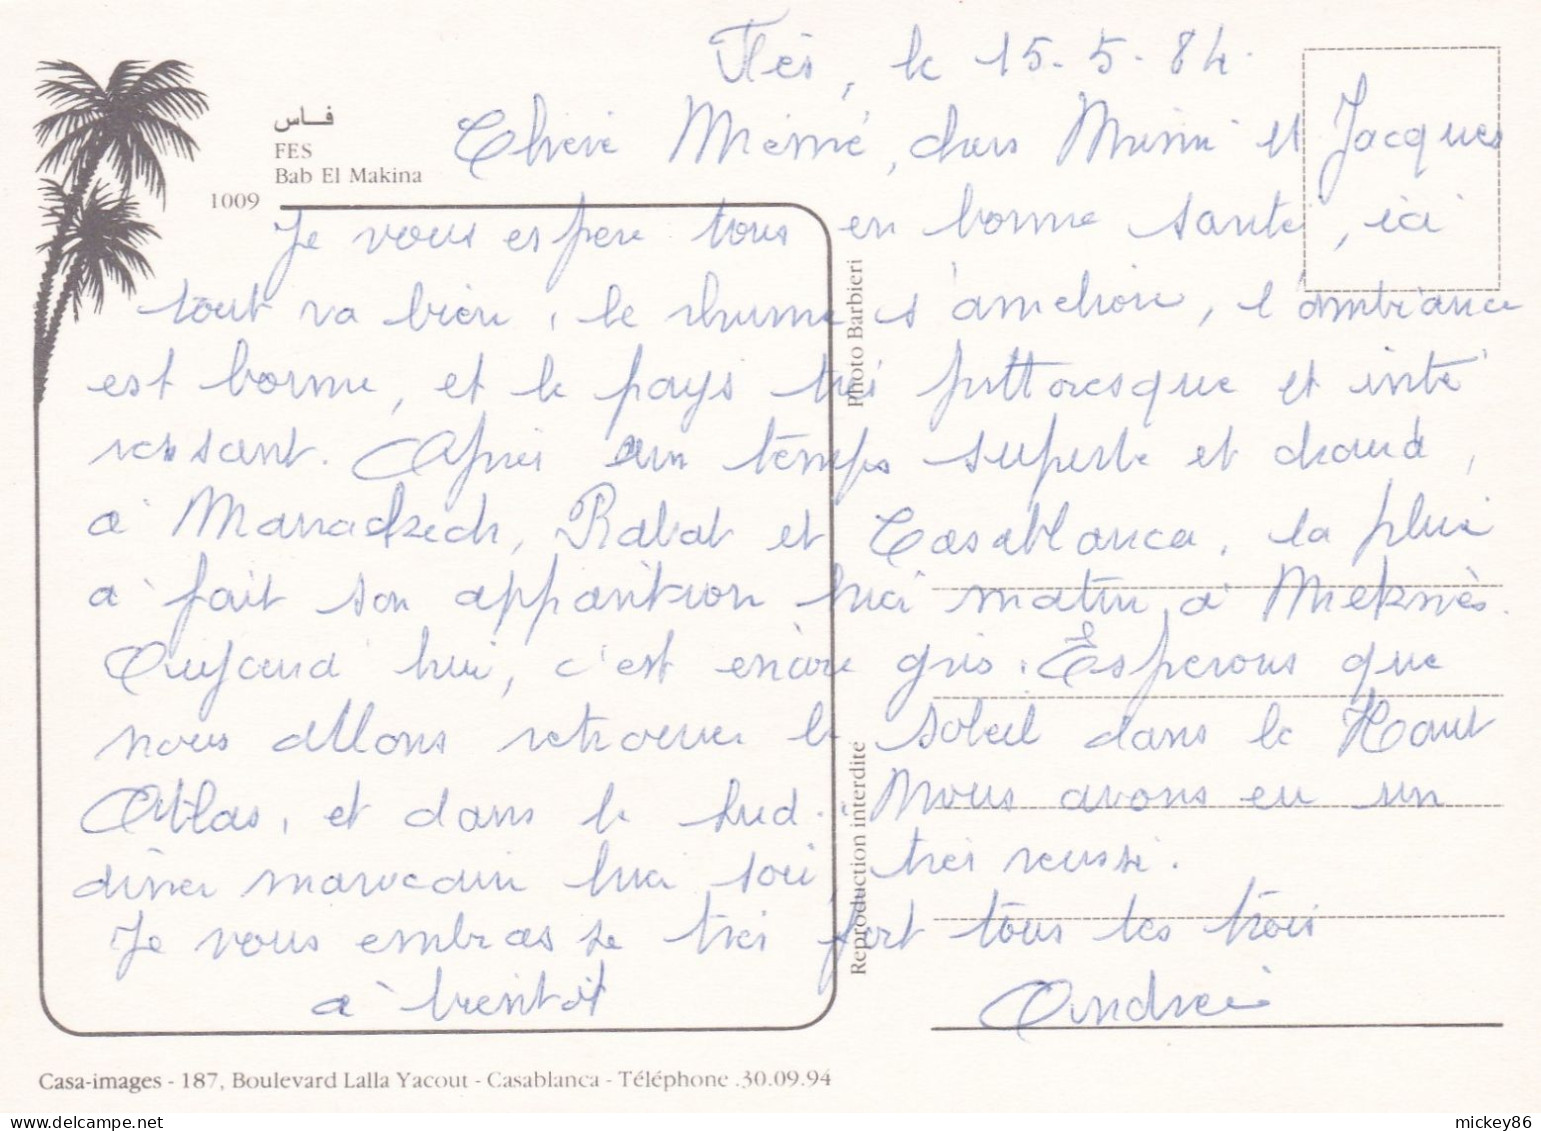 Fès, le 15-5-84.
فاس
FES
Bab El Makina
1009
Chère Mémé, chers Mimi et Jacques
Je vous espère tous en bonne santé, ici
tout va bien, le rhume s'améliore, l'ambiance
est bonne, et le pays très pittoresque et inté
ressant. Après un temps superbe et chaud,
à Marrackech, Rabat et Casablanca, la pluie
a fait son apparition hier matin à Meknès.
Aujourd'hui, c'est encore gris. Espérons que
nous allons retrouver le soleil dans le Haut
Atlas, et dans le Sud. Nous avons eu un
diner marocain hier soir, très réussi.
Je vous embrasse très fort tous les trois
à bientôt
Andrée
Photo Barbieri
Reproduction interdite
Casa-images - 187, Boulevard Lalla Yacout - Casablanca - Téléphone .30.09.94
mickey86